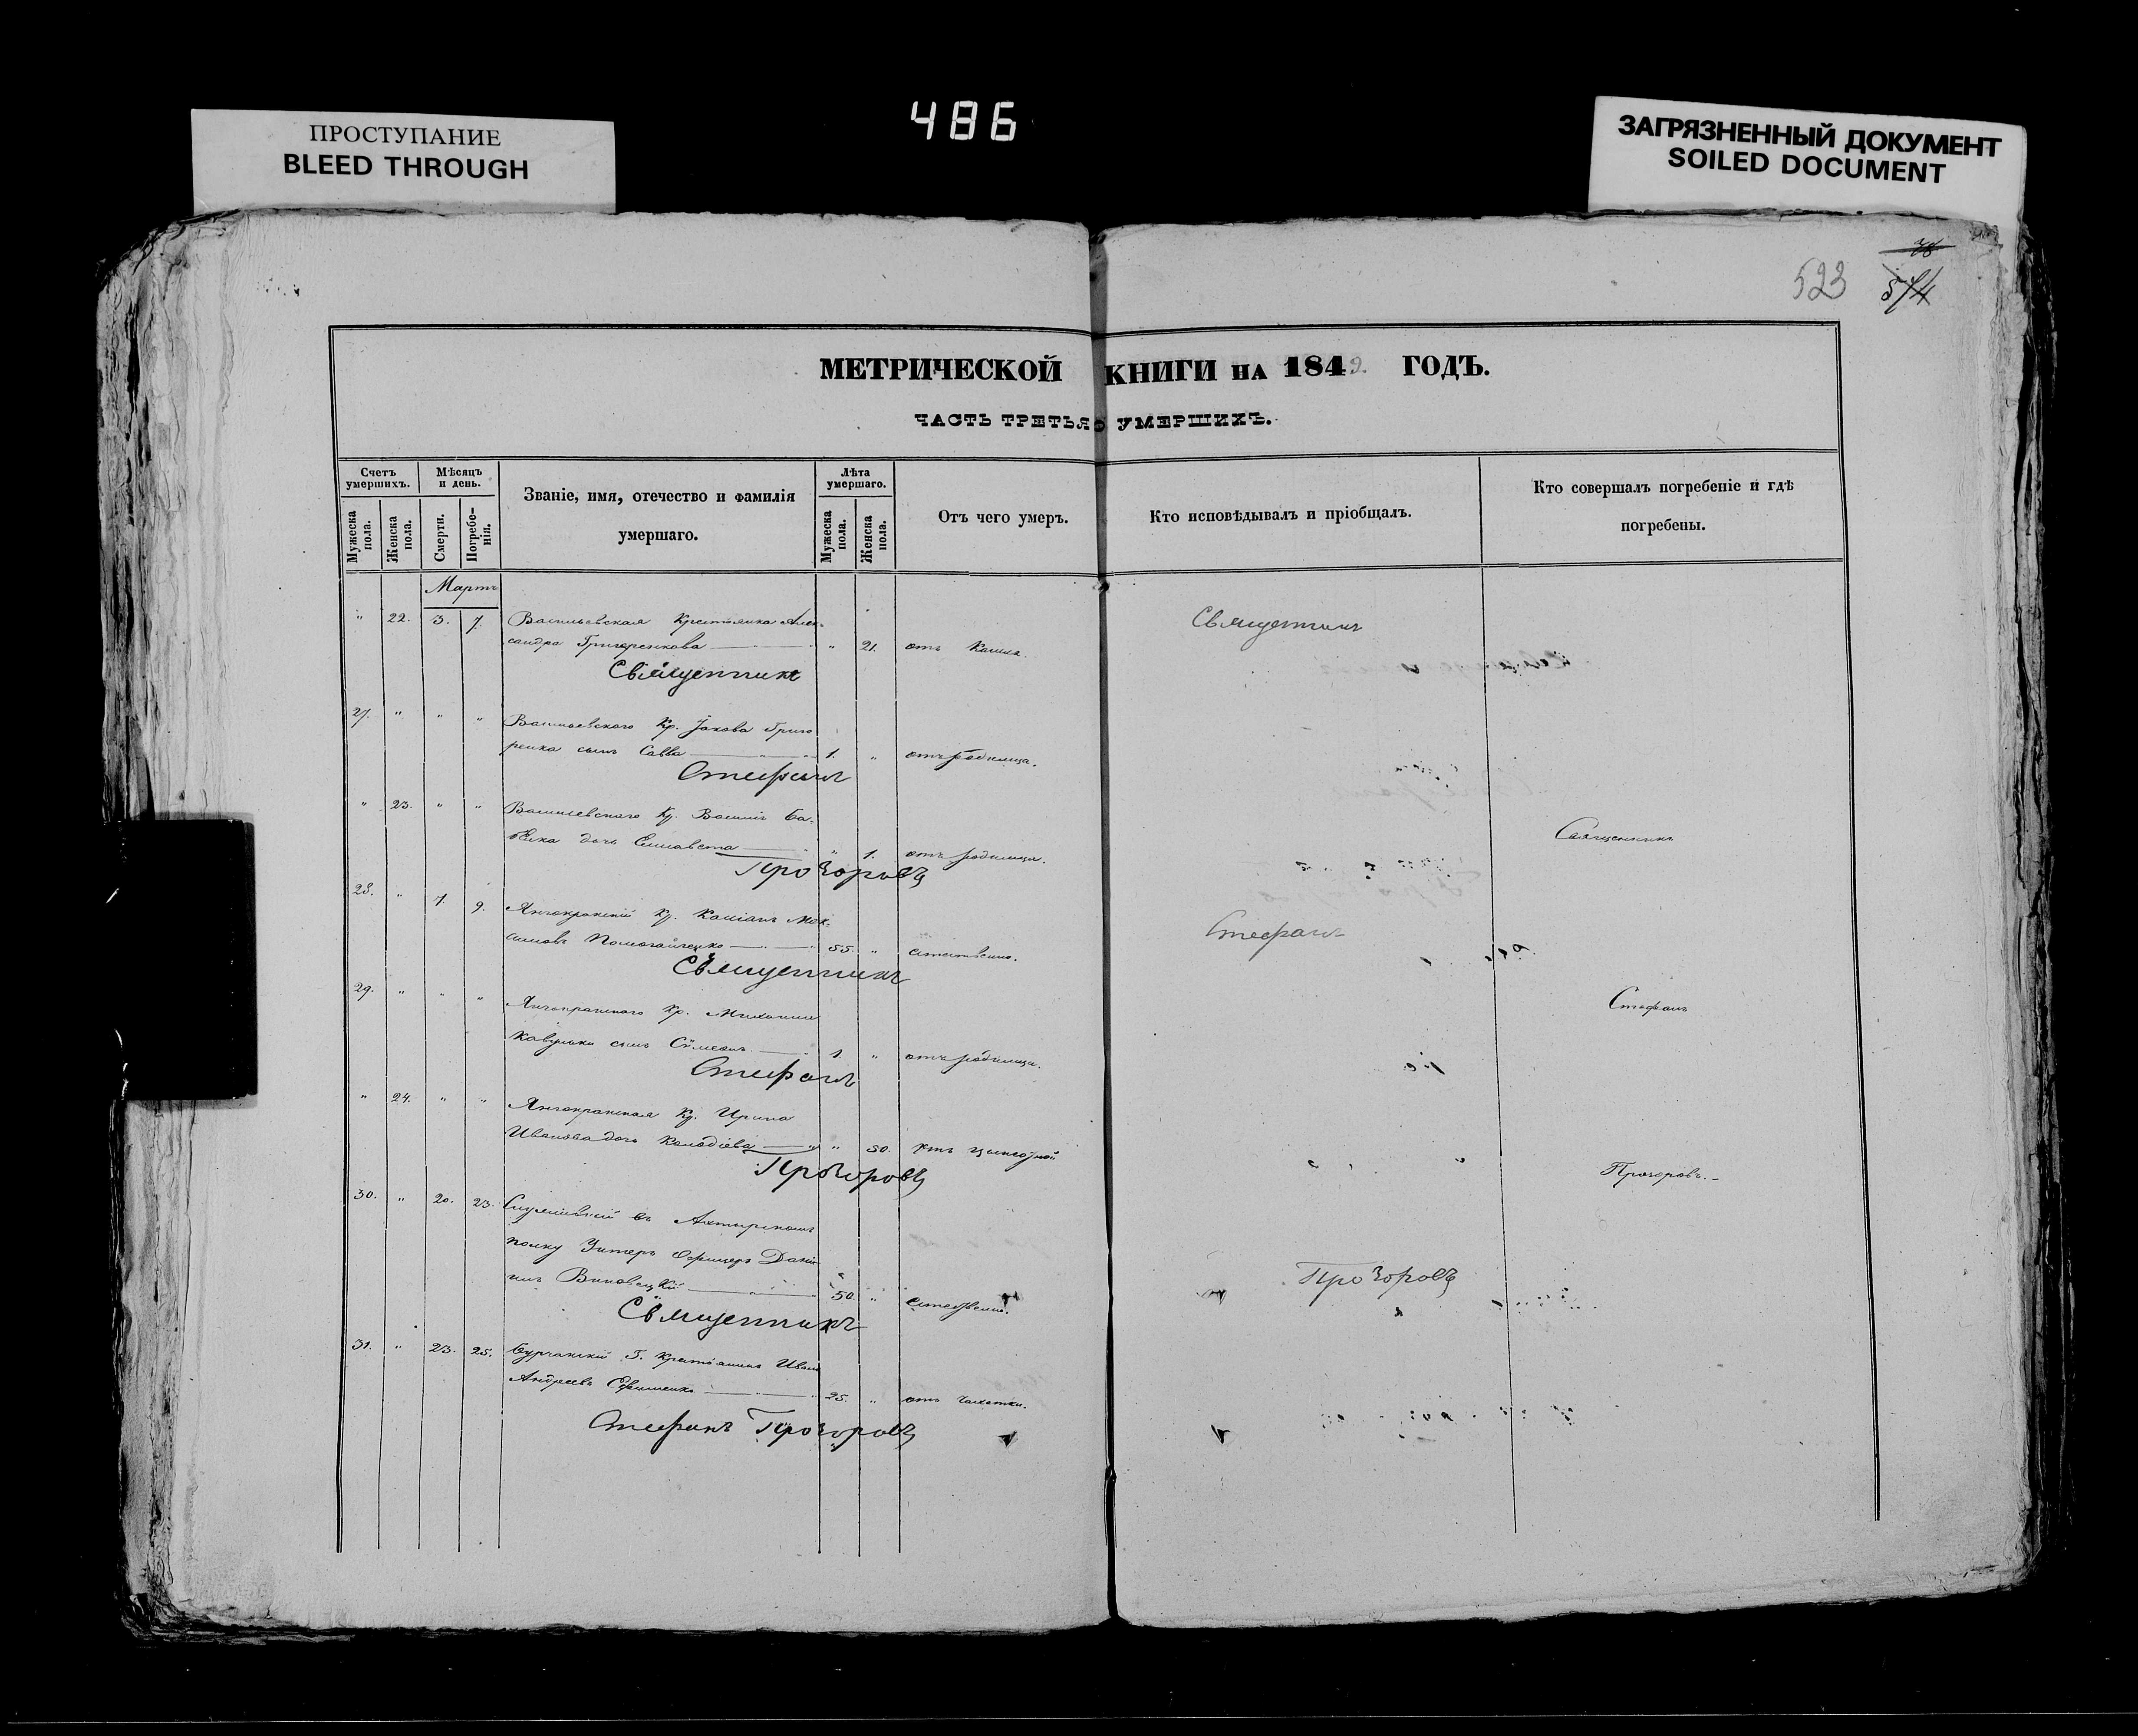 486
ПРОСТУПАНИЕ
BLEED THROUGH
ЗАГРЯЗНЕННЫЙ ДОКУМЕНТ
SOILED DOCUMENT
523
МЕТРИЧЕСКОЙ КНИГИ НА 1842 ГОДЪ.
ЧАСТЬ ТРЕТЬЯ О УМЕРШИХЪ.
Счетъ умершихъ.
Мужеска пола.
Женска пола.
Мѣсяцъ и день.
Смерти.
Погребе-нія.
Званіе, имя, отечество и фамилія
умершаго.
Лѣта умершаго.
Мужеска пола.
Женска пола.
Отъ чего умеръ.
Кто исповѣдывалъ и пріобщалъ.
Кто совершалъ погребеніе и гдѣ
погребены.
Мартъ
" 22. 3. 7. Васильевская Крестьянка Алек-
сандра Григоренкова " 21. отъ Кашля
Священникъ
27. " " " Васильевского Кр. Јакова Григо
ренка сынъ Савва 1. " отъ родимца.
Стефанъ
" 23. " " Васильевского Кр. Василія Ба-
дочь Елисавета " 1. отъ родимца.
Прозоровъ
28. " 7. 9. Кр. Касіанъ Мак-
симовъ 55. " естественно.
Священникъ
29. " " " Кр.
сынъ Сѵмеонъ 1. " отъ родимца.
Стефанъ
" 24. " " Кр. Ирина
Иванова дочь " 50. отъ цынготной
Прозоровъ
30. " 20. 23. Служившій въ Ахтырскомъ
полку Унтеръ Офицеръ Даніи
илъ 50. " естественно.
Священникъ
31. " 23. 25. Крестьянинъ Иванъ
Андреевъ Ефименко 25. " отъ чахотки.
Стефанъ Прозоровъ
Священникъ
Стефанъ
Прозоровъ
Священникъ
Стефанъ
Прозоровъ.